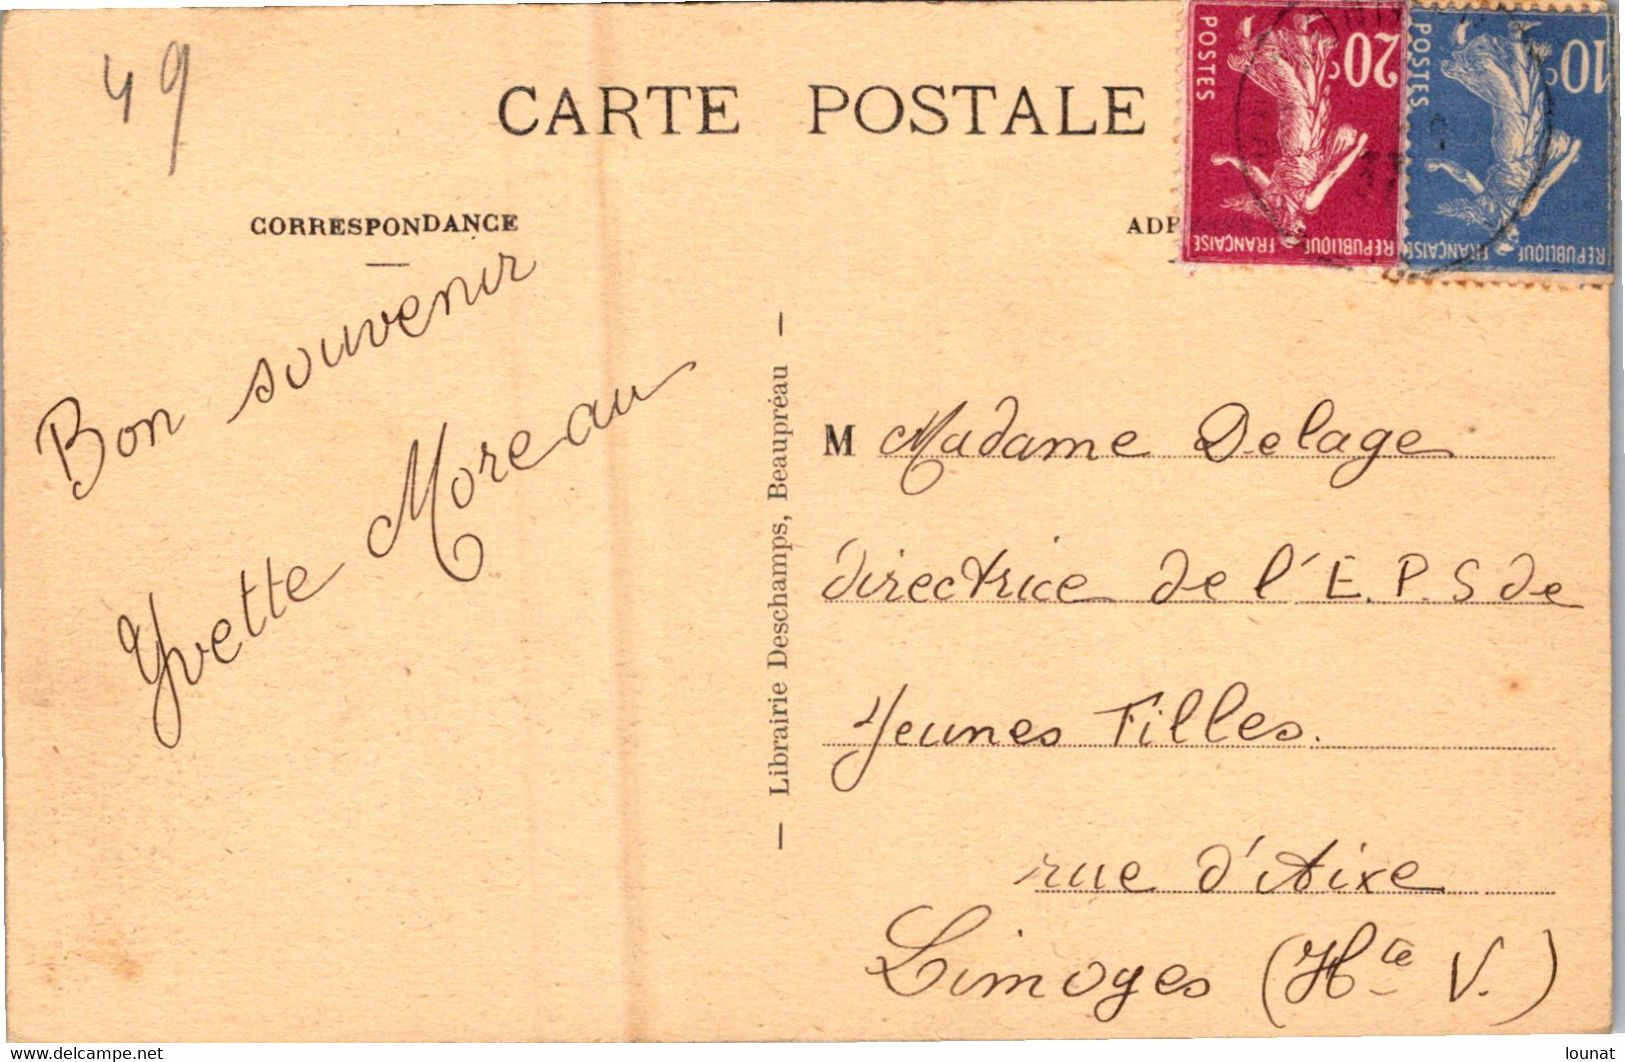 49
CARTE POSTALE
CORRESPONDANCE
Bon souvenir
Yvette Moreau
— Librairie Deschamps, Beaupréau —
POSTES
20c
REPUBLIQUE FRANÇAISE
POSTES
10c
REPUBLIQUE FRANÇAISE
M Madame Delage
directrice de l'E.P.S de
Jeunes Filles.
rue d'Aixe
Limoges (Hte V.)
https://www.delcampe.net
lounat